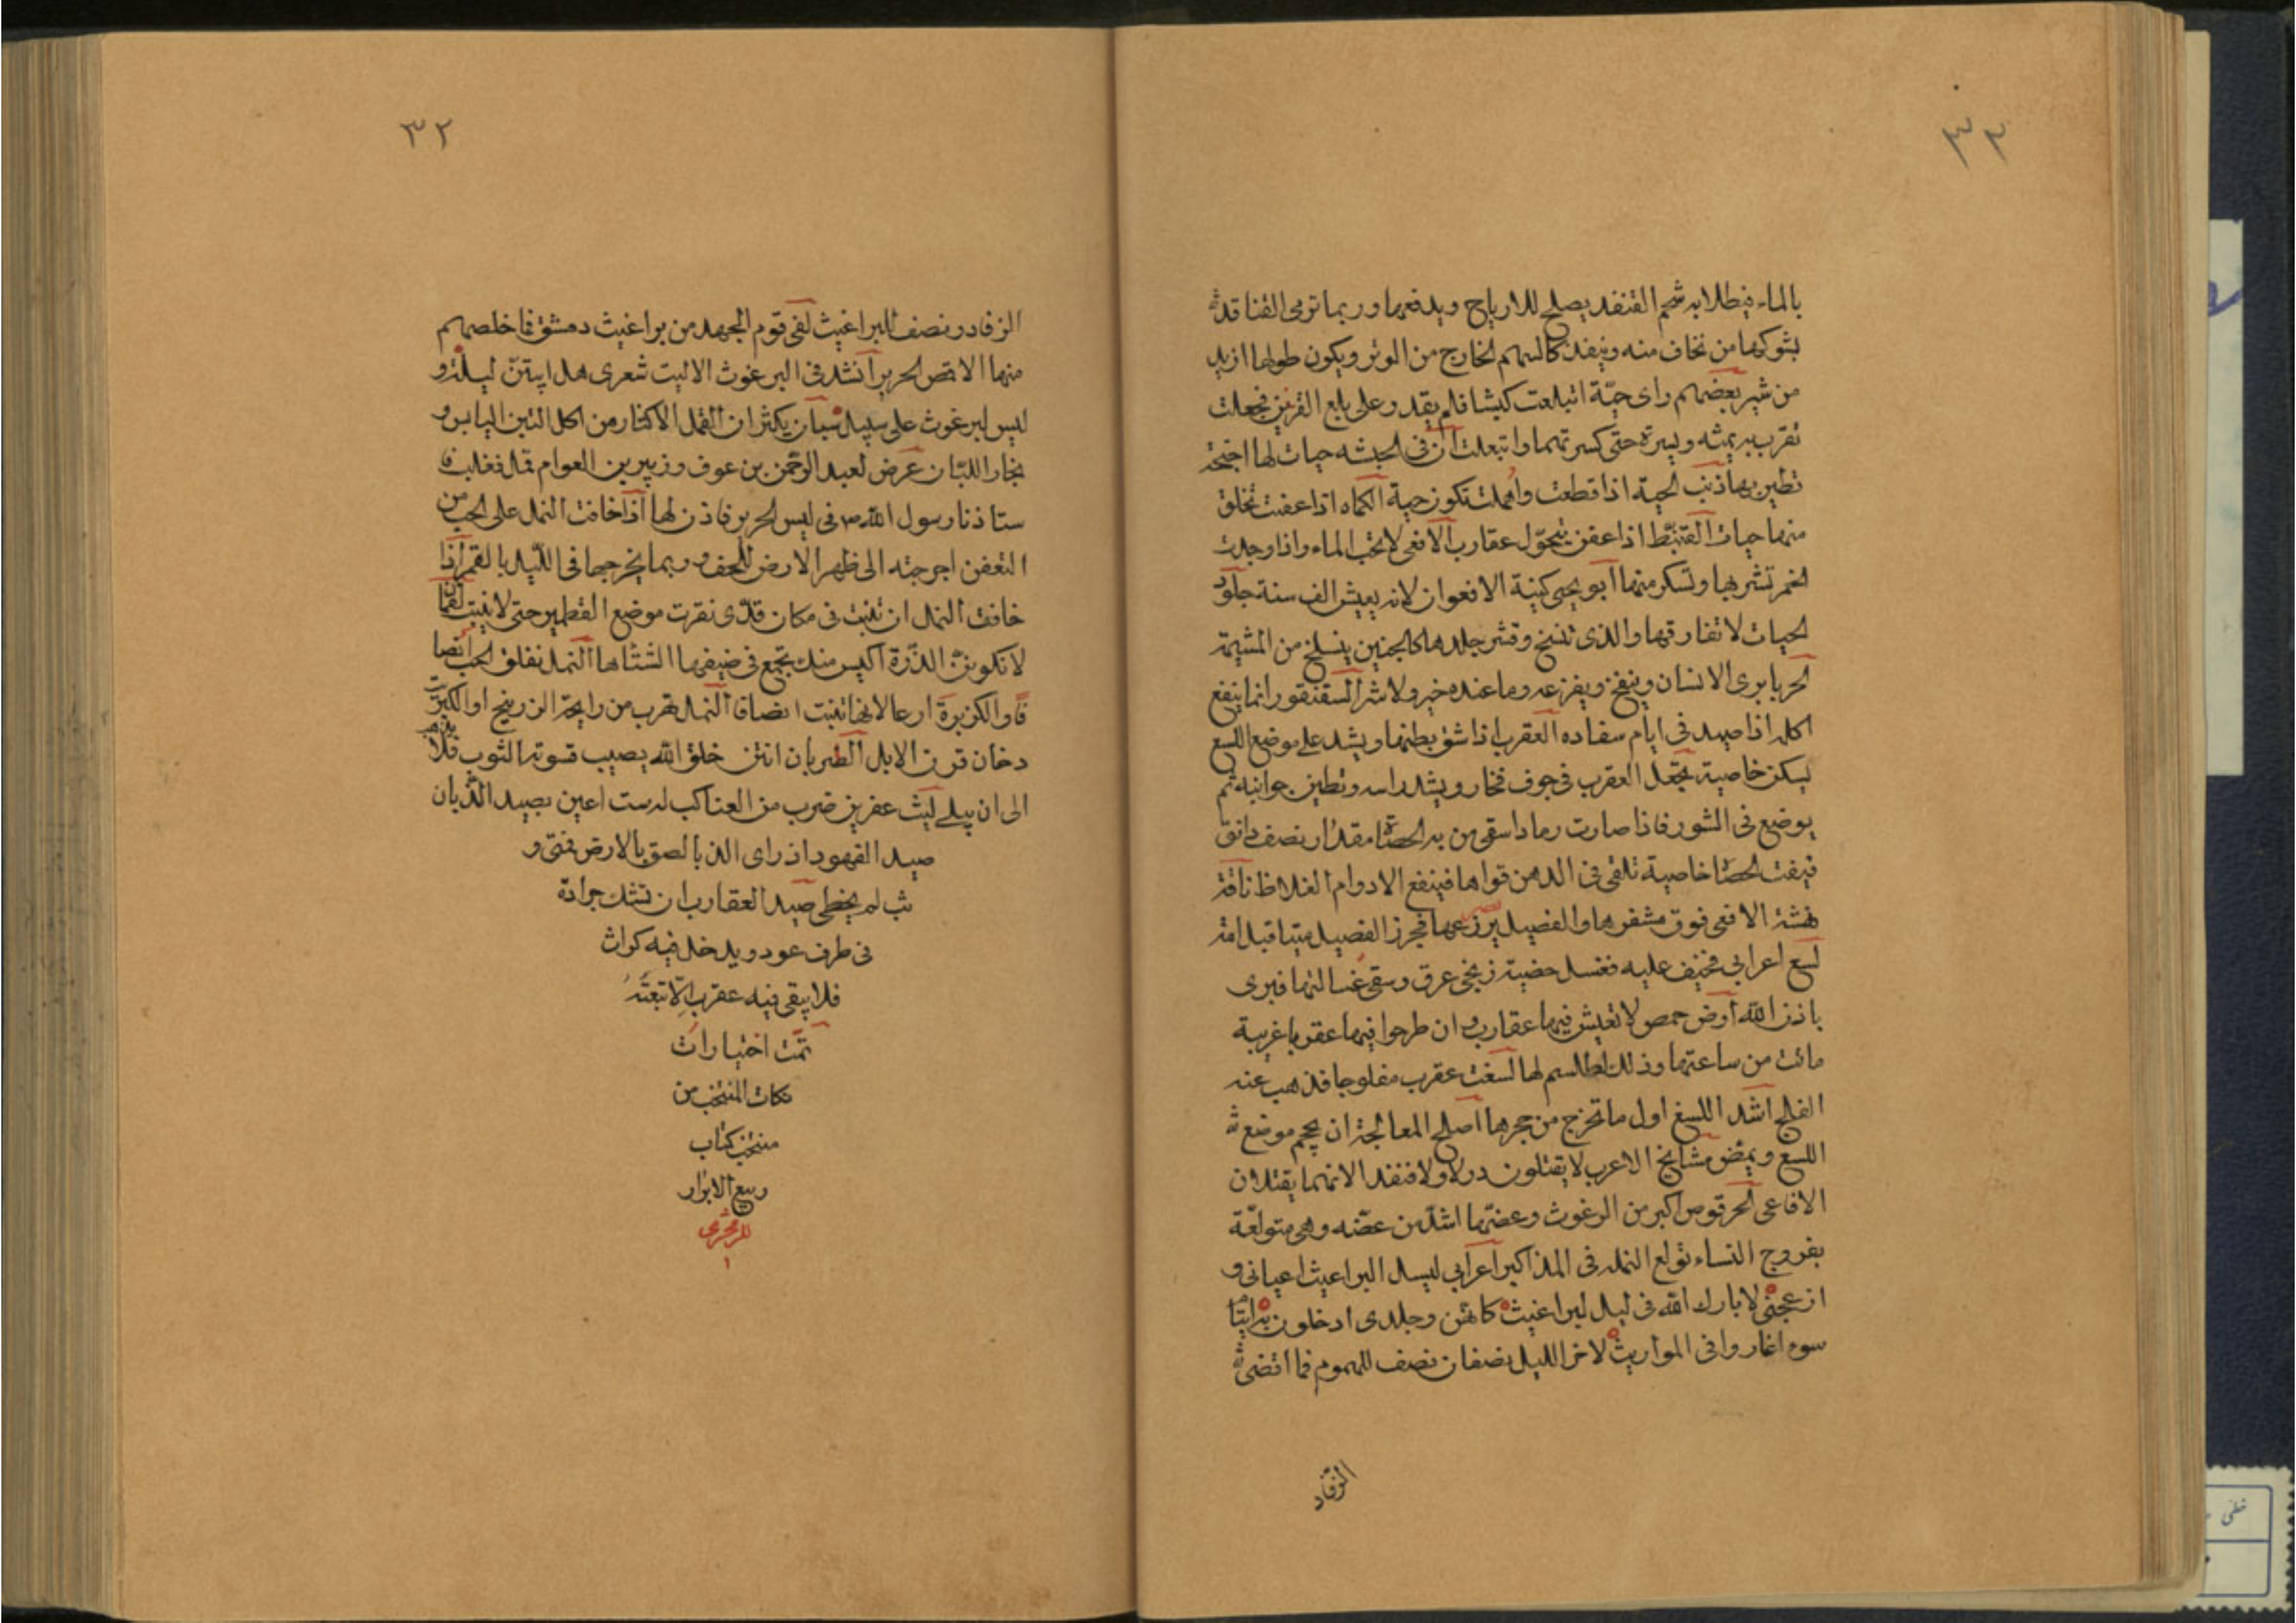 ٣٣
بالماء فيطلا به شحم القنفد يصلح للارياح ويدفعها وربما ترمى القنافد
بشوكها من تخاف منه وينفذ كالسهم الخارج من الوتر ويكون طولها ازيد
من شبر بعضهم راى حيّة ابتلعت كبشا فلم يقدر على بلع القرنين فجعلت
تقرب به يمنه ويسرة حتى كسرتهما وابتعلت ان فى الحبشه حيات لها اجنحة
تطير بها ذنب الحية اذا قطعت واهملت تكون حية الكماه اذا عفنت تخلق
منها حيات القنّبط اذا عفن يتحوّل عقارب الافعى لا تحب الماء واذا وجدت
الخمر تشربها وتسكر منها ابو يحيى كنية الافعوان لانه يعيش الف سنة جلود
الحيات لا تفارقها والذى تنسخ وقشر جلدها كالجنين ينسلخ من المشيمة
الحربا يرى الانسان وينفخ ويفزعه وما عنده خير ولا شر السقنقور انما ينفع
اكله اذا صيد فى ايام سفاده العقرب اذا شق بطنها ويشد على موضع اللسع
ليسكن خاصية يجعل العقرب فى جوف فخار ويشد راسه وتطين جوانبه ثم
يوضع فى التنور فاذا صارت رمادا سقى من به الحصاة مقدار نصف دانق
فيفت الحصا خاصية تلقى فى الدهن قواها فينفع الاورام الغلاظ ناقة
نهشة الافعى فوق مشفرها والفصيل يرضعها فجرز الفصيل ميتا قبل امه
لسع اعرابى فخيف عليه فغسل خصية زنجى عرق وسقى غسالتها فبرى
باذن الله ارض حمص لا تعيش فيها عقارب وان طرحوا فيها عقربا غريبة
ماتت من ساعتها وذلك لطلسم لها لسعت عقرب مفلوجا فذهب عنه
الفالج اشد اللسغ اول ما تخرج من جحرها اصلح المعالجة ان يحجم موضع
اللسع ويمص مشايخ الاعرب لا يقتلون ورلا ولا قنفد الانهما يقتلان
الافاعى الحرقوص اكبر من البرغوث وعضتها اشد من عضه وهى متولعة
بفروج النساء تولع النمل فى المذاكير اعرابى ليسل البراعيث اعيانى و
ازعجنى لا بارك الله فى ليل البراغيث كانهن وجلدى ادخلون به ايتام
سوء اغاروا فى المواريث لاخر الليل نصفان نصف للهموم فما اقضى
الرقاد
٣٢
الرقاد ونصف للبراغيث لقى قوم الجهد من براغيث دمشق فما خلصهم
منها الا قمص الحرير انشد فى البرغوث الا ليت شعرى هل ابيتنّ ليلة و
ليس لبرغوث على سبيل سببان يكثران القمل الاكثار من اكل التين اليابس و
بخار اللبان عرض لعبد الرحمن بن عوف وزبير بن العوام قمل فغلب فا
ستاذنا رسول الله ص فى لبس الحرير فاذن لها اذا خافت النمل على الحب من
التعفن اجرجته الى ظهر الارض ليجف وربما يخرجها فى الليل بالقمر اذا
خافت النمل ان تنبت فى مكان قدى نقرت موضع القطمير حتى لا تنبت لقمان
لا تكونن الذرة اكيس منك تجمع فى صيفها الشتاها النمل تفلق الحب انصا
فا والكزبرة ارعا لانها تنبت انصافا النمل تهرب من رايحة الزرنيخ او الكبريت
دخان قرن الابل الظربان انتن خلق الله يصيب فسوته الثوب فلا يذهب
الى ان يبلى ليث عفرين ضرب من العناكب له ست اعين يصيد الذبان
صيد الفهود اذ راى الذباب لصق بالارض فمتى و
ثب لم يخطى صيد العقارب ان تشك جرادة
فى طرف عود ويدخل فيه كراث
فلا يبقى فيه عقرب الا تبعته
تمّت اختيارات
نكات المنتخب من
منتخب كتاب
ربيع الابرار
للزمخشرى